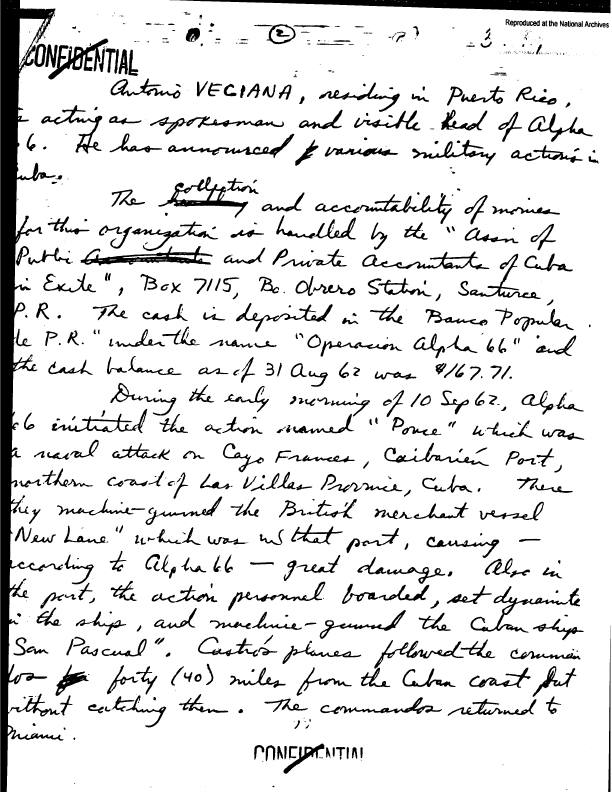 Reproduced at the National Archives
2
3
CONFIDENTIAL
Antonio VECIANA, residing in Puerto Rico,
s acting as spokesman and visible head of Alpha
6. He has announced various military actions in
uba.
The collection and accountability of monies
for this organization is handled by the "Assn of
Public and Private Accountants of Cuba
in Exile", Box 7115, Bo. Obrero Station, Santurce,
P.R. The cash is deposited in the Banco Popular
de P.R." under the name "Operacion Alpha 66" and
the cash balance as of 31 Aug 62 was $167.71.
During the early morning of 10 Sep 62, Alpha
66 initiated the action named "Ponce" which was
a naval attack on Cayo Frances, Caibarién Port,
northern coast of Las Villas Province, Cuba. There
they machine-gunned the British merchant vessel
"New Lane" which was in that port, causing —
according to Alpha 66 — great damage. Also in
the port, the action personnel boarded, set dynamite
in the ship, and machine-gunned the Cuban ship
"San Pascual". Castro's planes followed the comman
dos forty (40) miles from the Cuban coast but
without catching them. The commandos returned to
Miami.
CONFIDENTIAL